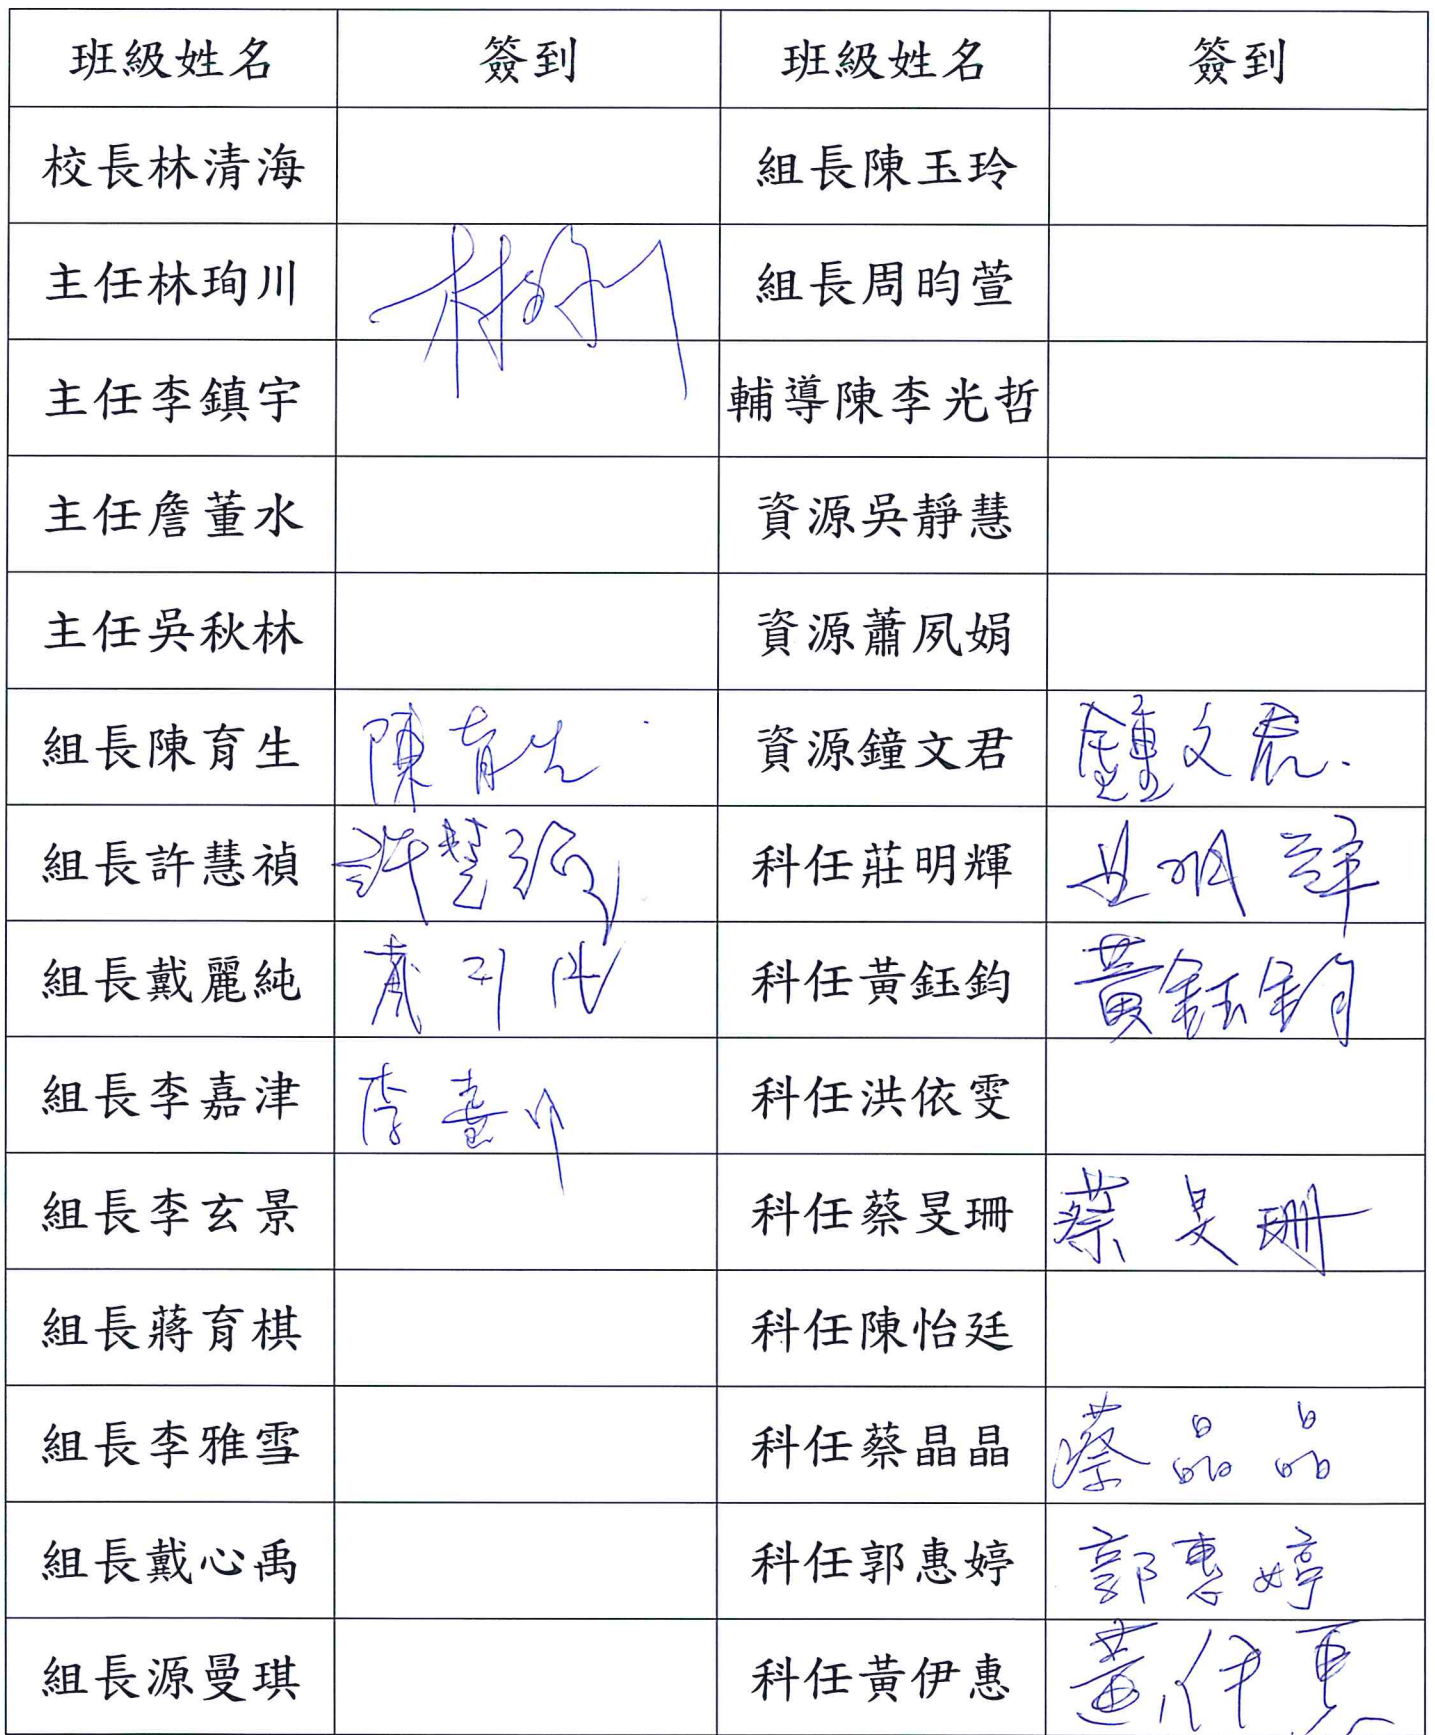 班級姓名 簽到 班級姓名 簽到
校長林清海 組長陳玉玲
主任林珣川 林珣川 組長周昀萱
主任李鎮宇 輔導陳李光哲
主任詹董水 資源吳靜慧
主任吳秋林 資源蕭夙娟
組長陳育生 陳育生 資源鐘文君 鐘文君
組長許慧禎 許慧禎 科任莊明輝 莊明輝
組長戴麗純 戴麗純 科任黃鈺鈞 黃鈺鈞
組長李嘉津 李嘉津 科任洪依雯
組長李玄景 科任蔡旻珊 蔡旻珊
組長蔣育棋 科任陳怡廷
組長李雅雪 科任蔡晶晶 蔡晶晶
組長戴心禹 科任郭惠婷 郭惠婷
組長源曼琪 科任黃伊惠 黃伊惠